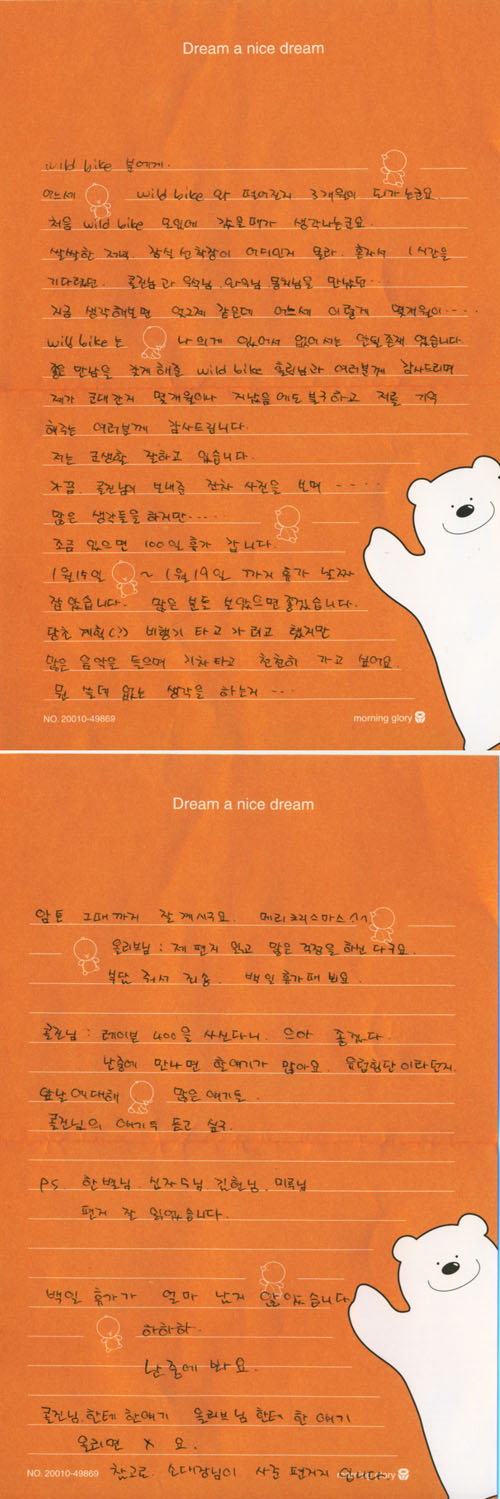 Dream a nice dream
wild bike 분에게.
어느세 wild bike 와 떨어진지 3개월이 되가는군요.
처음 wild bike 모임에 갔을때가 생각나는군요.
쌀쌀한 저녁 잠실 선착장이 어디인지 몰라. 혼자서 1시간을
기다렸던. 콜진님과
지금 생각해보면 엊그제 같은데 어느세 이렇게 몇개월이‥‥
wild bike는 나의게 있어서 없어서는 안될 존재 였습니다.
좋은 만남을 갖게 해준 wild bike 님과 여러분께 감사드리며
제가 군대간지 몇개월이나 지났음에도 불구하고 저를 기억
해주는 여러분께 감사드립니다.
저는 군생활 잘하고 있습니다.
가끔 콜진님이 보내준 잔차 사진을 보며 ‥‥‥
많은 생각들을 하지만‥‥‥
조금 있으면 100일 휴가 갑니다.
1월15일 ~ 1월19일 까지 휴가 날짜
잡았습니다. 많은 분들 보았으면 좋겠습니다.
당초 계획(?) 비행기 타고 가려고 했지만
많은 음악을 들으며 기차타고 천천히 가고 싶어요.
뭔 쓸데 없는 생각을 하는지 ‥‥
NO. 20010-49869 morning glory
Dream a nice dream
암튼 그때까지 잘 계시구요. 메리크리스마스^^
올리브님 : 제 편지 읽고 많은 걱정을 하신 다구요.
부담 줘서 죄송. 백일 휴가때 봐요.
콜진님 : 레이본 400을 사신다니. 으아 좋겠다.
난중에 만나면 할얘기가 많아요. 유럽횡단이라던지.
앞날에대해 많은 얘기들.
콜진님의 얘기두 듣고 싶구.
PS. 한별님. 김현님. 미루님
편지 잘 읽었습니다.
백일 휴가가 얼마 남지 않았습니다
하하하.
난중에 봐요.
콜진님 한테 한얘기 올리브님 한테 한 얘기
올리면 X 요.
참고로 소대장님이 사준 편지지 입니다.
NO. 20010-49869 morning glory